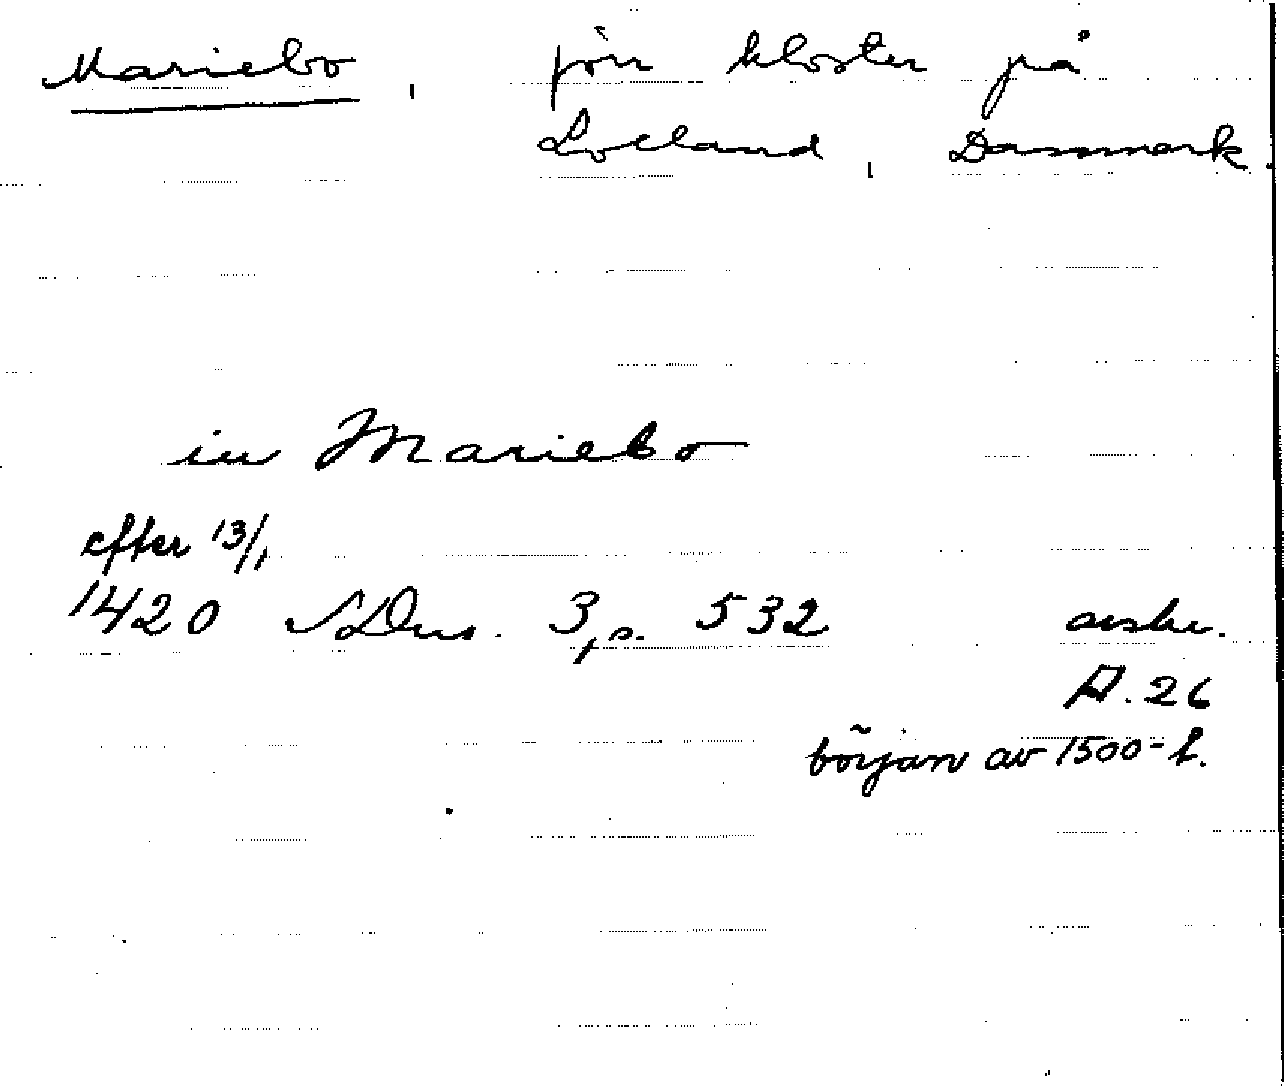 Mariebo, förr kloster på
Lolland, Danmark.
in Mariebo
efter 13/1
1420 SDns. 3, s. 532 avskr.
A. 26
början av 1500-t.